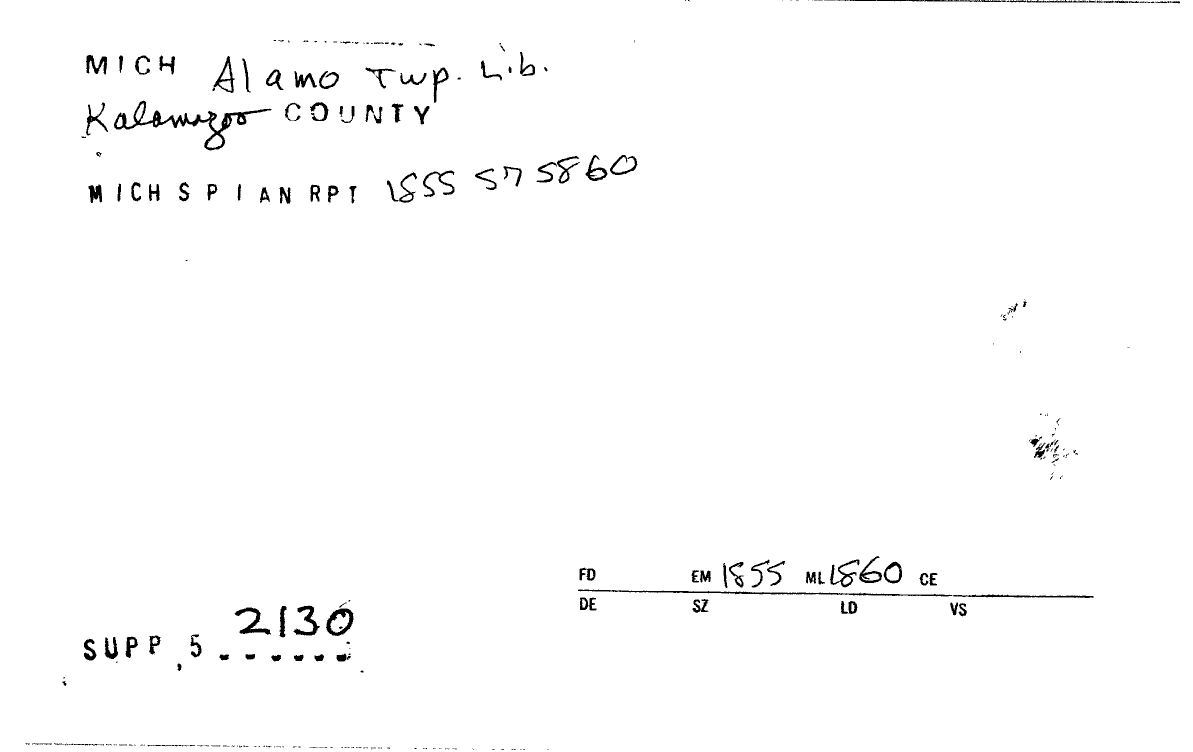 MICH Alamo Twp. Lib.
Kalamazoo COUNTY
MICH S P I AN RPT 1855 57 5860
FD EM 1855 ML 1860 CE
DE SZ LD VS
2130
SUPP ,5 ------